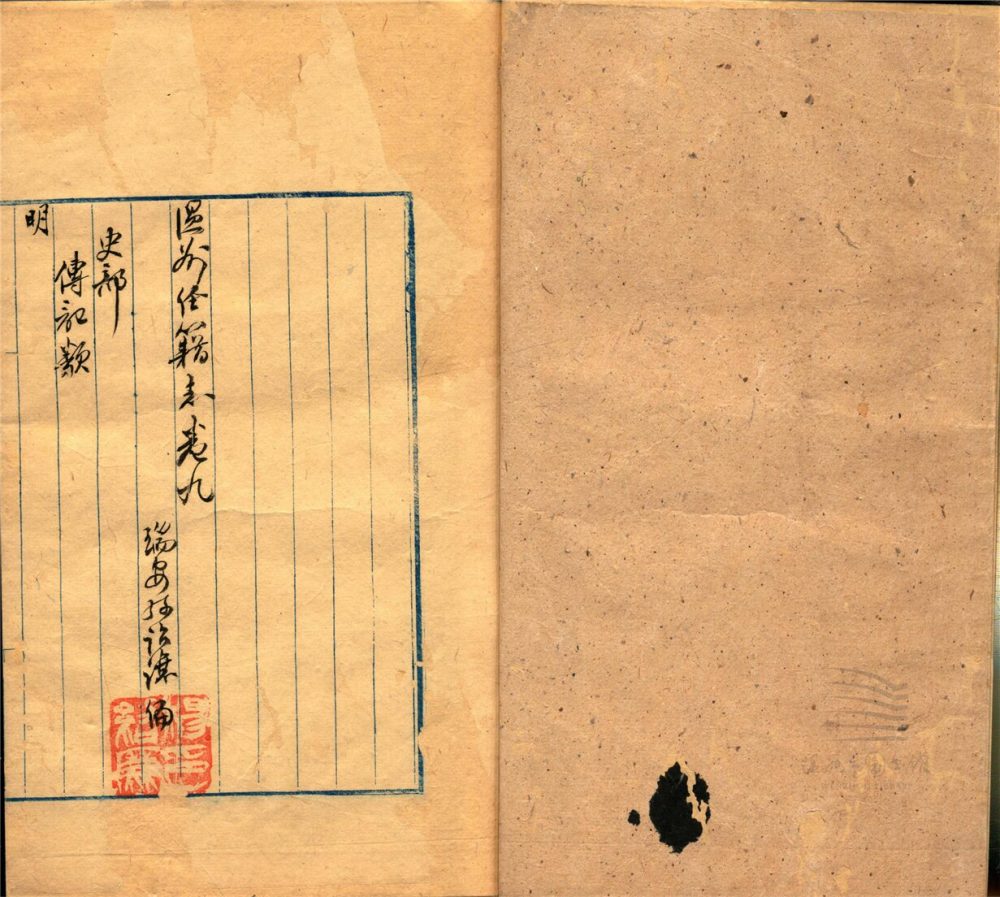 溫州經籍志卷九
瑞安孫詒讓編
史部
傳記類
明